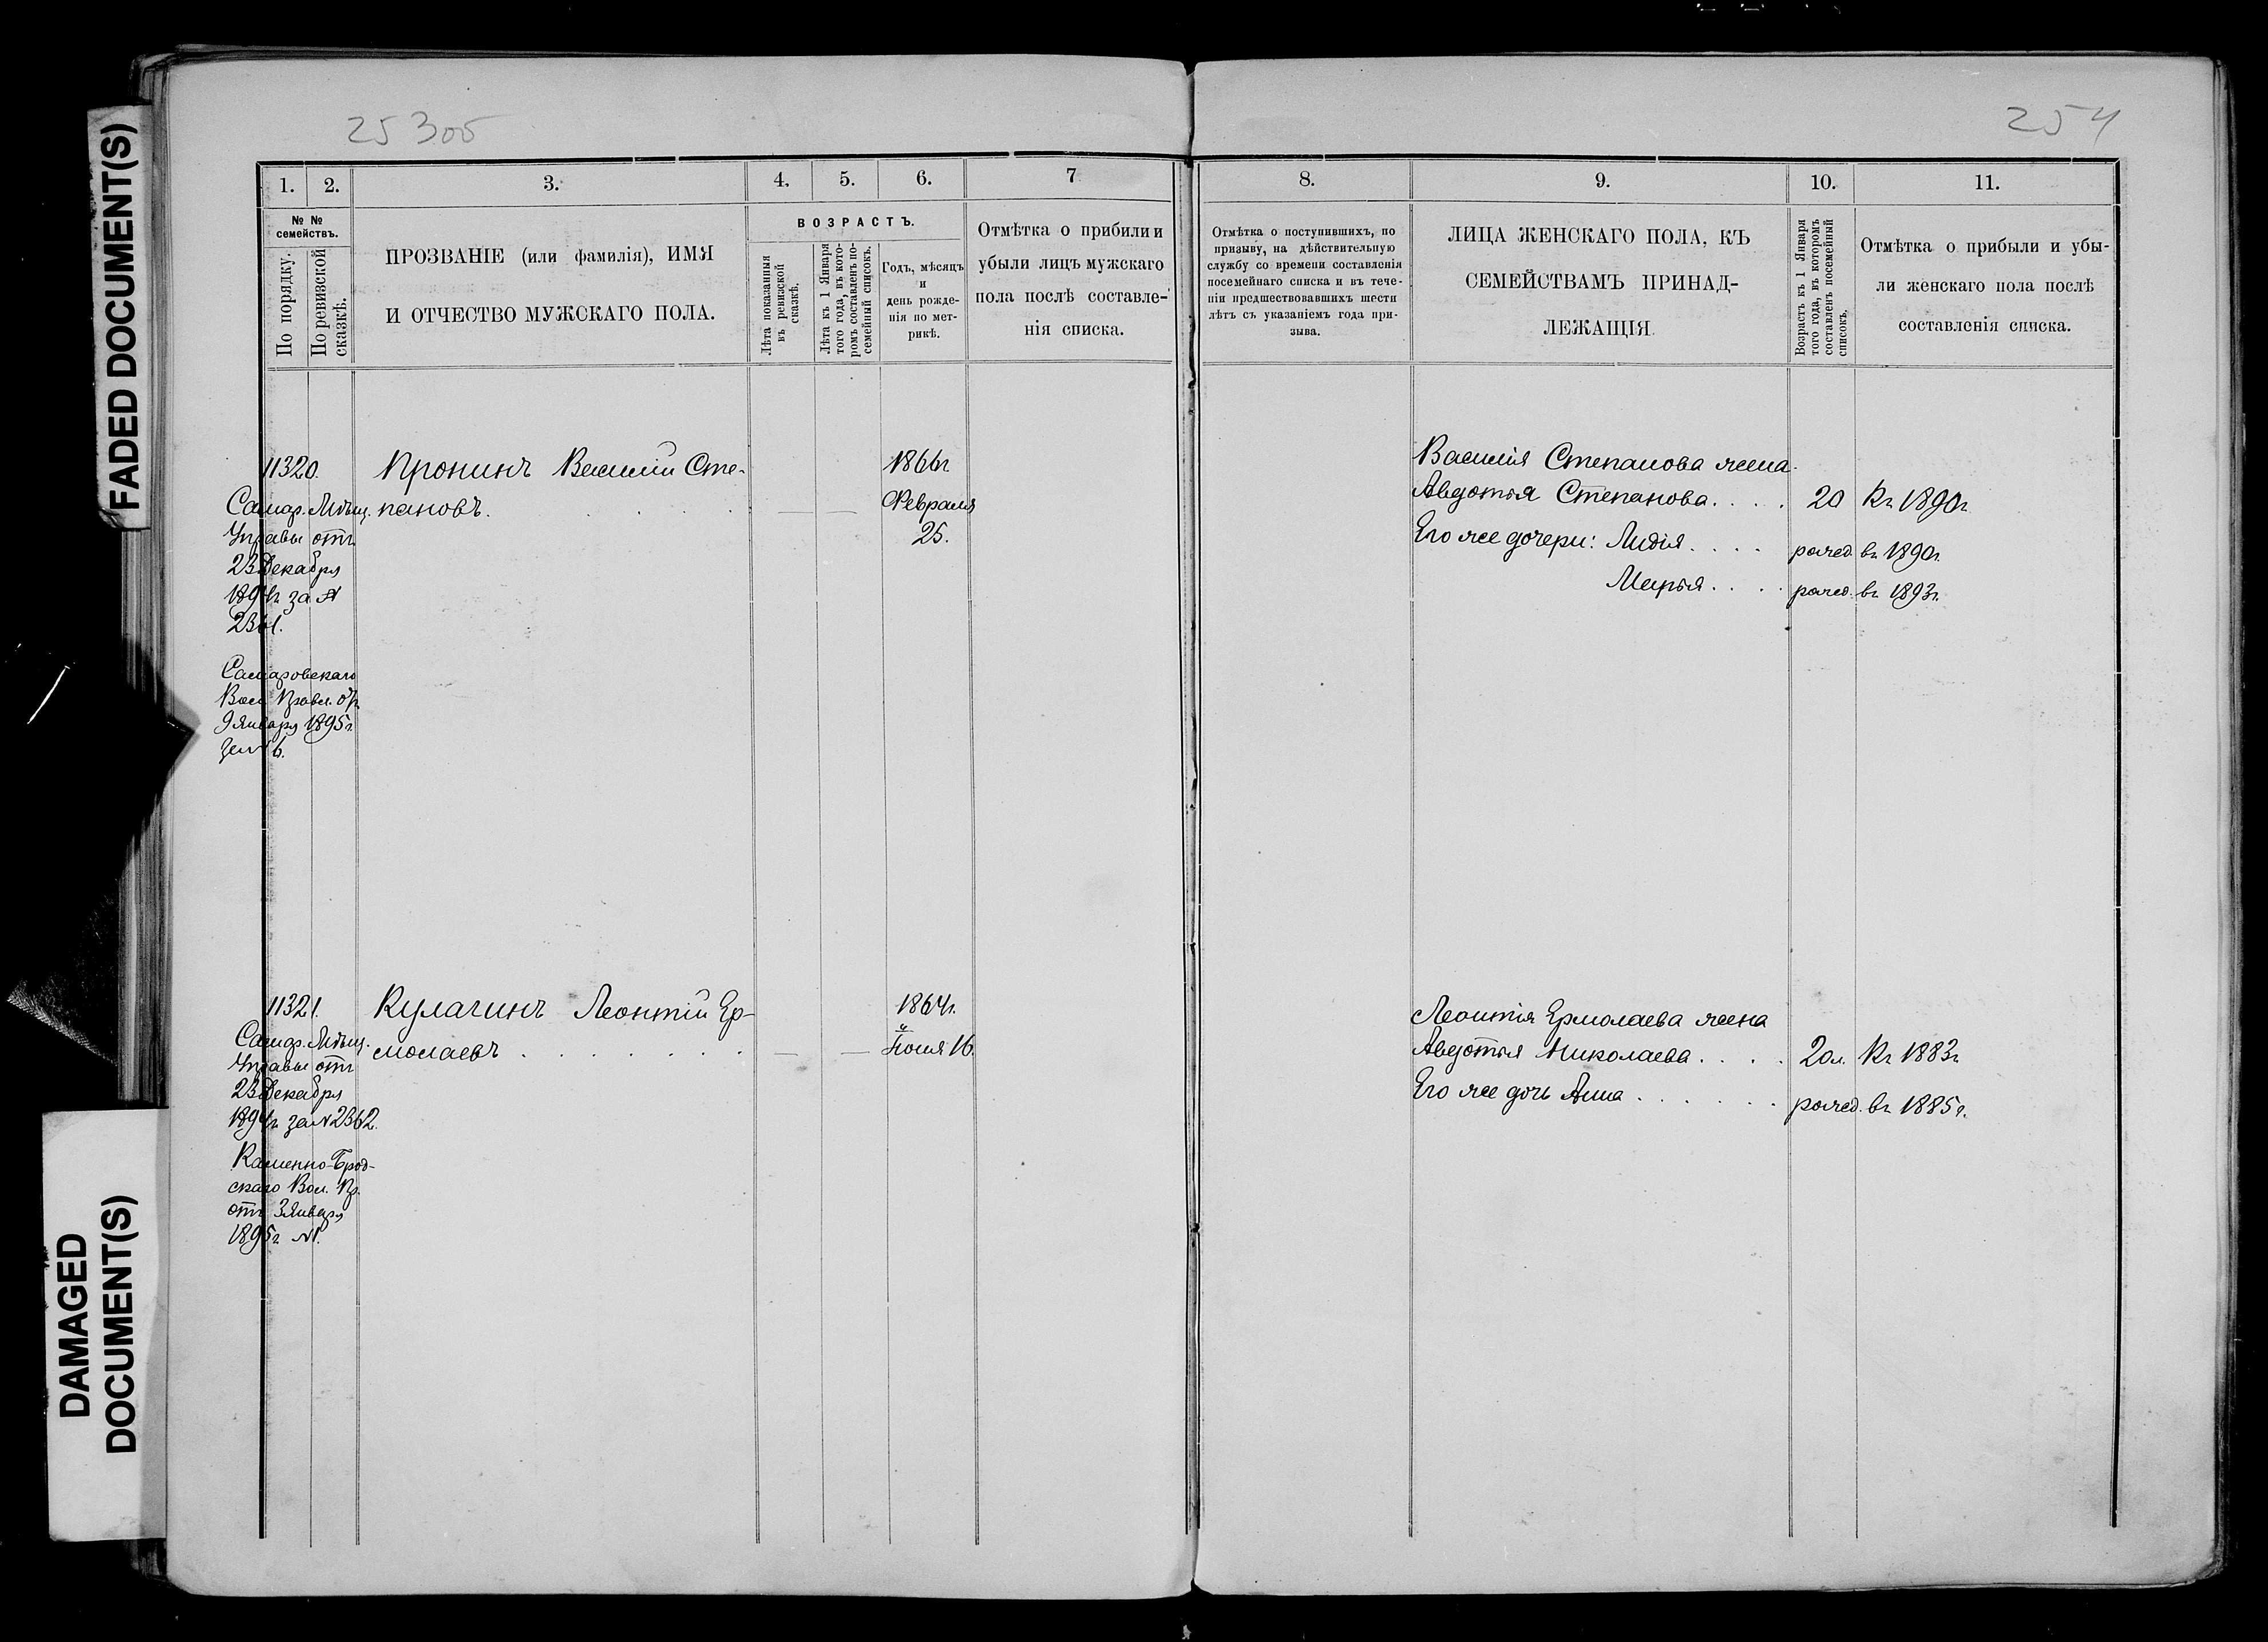 FADED DOCUMENT(S)
DAMAGED
DOCUMENT(S)
25 300
254
1.
2.
3.
4.
5.
6.
7
8.
9.
10.
11.
№ №
семействъ.
По порядку.
По ревизской
сказкѣ.
ПРОЗВАНІЕ (или фамилія), ИМЯ
И ОТЧЕСТВО МУЖСКАГО ПОЛА.
ВОЗРАСТЪ.
Лѣта показанныя
въ ревизской
сказкѣ,
Лѣта къ 1 Января
того года, въ кото-
ромъ составленъ по-
семейный списокъ.
Годъ, мѣсяцъ
и
день рожде-
нія по мет-
рикѣ.
Отмѣтка о прибили и
убыли лицъ мужскаго
пола послѣ составле-
нія списка.
Отмѣтка о поступившихъ, по
призыву, на дѣйствительную
службу со времени составленія
посемейнаго списка и въ тече-
ніи предшествовавшихъ шести
лѣтъ съ указаніемъ года при-
зыва.
ЛИЦА ЖЕНСКАГО ПОЛА, КЪ
СЕМЕЙСТВАМЪ ПРИНАД-
ЛЕЖАЩІЯ
Возрастъ къ 1 Января
того года, въ которомъ
составленъ посемейный
списокъ.
Отмѣтка о прибыли и убы-
ли женскаго пола послѣ
составленія списка.
11320.
Самар. Мѣщ.
Управы отъ
23 Декабря
1894г. за №
2361.
Самаровскаго
Вол. Правл. отъ
9 Января 1895г.
за № 6.
Пронинъ Василій Сте-
пановъ.
1866г.
Февраля
25.
Василія Степанова жена
Авдотья Степанова. . . . 20 Къ 1890г.
Его же дочери: Лидія. . . . рожд. въ 1890г.
Марья. . . . рожд. въ 1893г.
11321.
Самар. Мѣщ.
Управы отъ
23 Декабря
1894г. за № 2362.
Каменно-Брод-
скаго Вол. Пр.
отъ 3 Января
1895г. №1.
Кулагинъ Леонтій Ер-
молаевъ
1864г.
Іюня 16.
Леонтія Ермолаева жена
Авдотья Николаева. . . . 20л. Къ 1883г.
Его же дочь Анна . . . . . . рожд. въ 1885г.